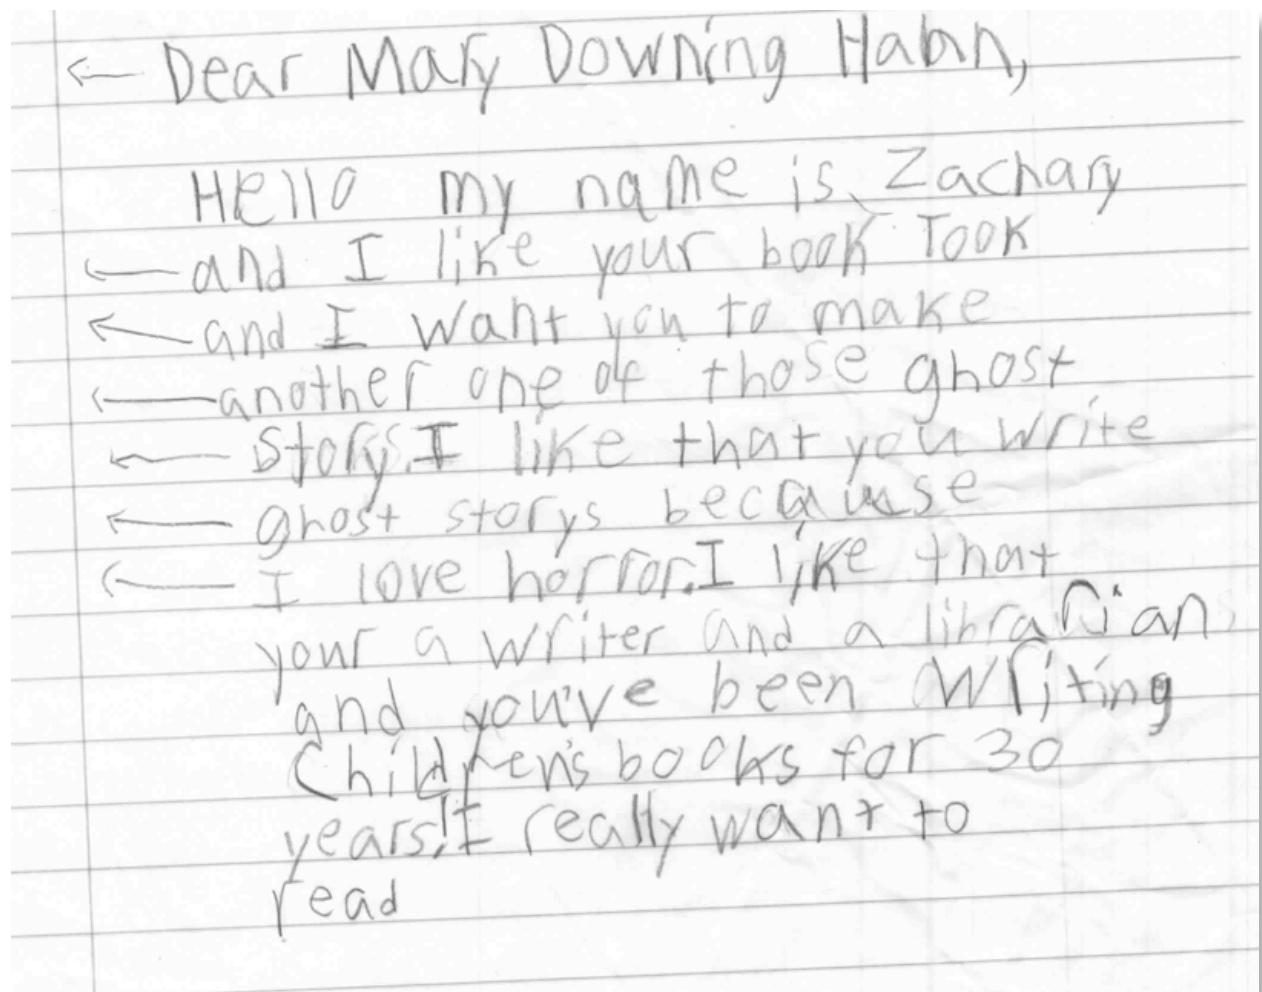 ← Dear Mary Downing Hahn,
Hello my name is Zachary
← and I like your book Took
← and I want you to make
← another one of those ghost
← storys. I like that you write
← ghost storys because
← I love horror. I like that
your a writer and a librarian
and you've been writing
Children's books for 30
years! I really want to
read